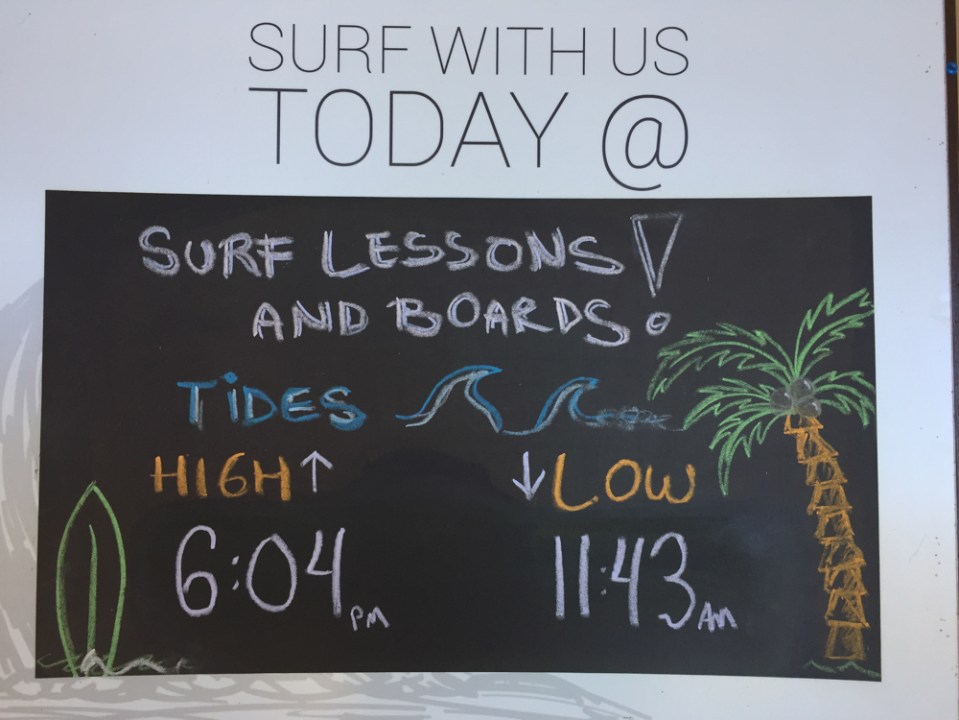 SURF WITH US
TODAY @
SURF LESSONS!
AND BOARDS
TIDES
HIGH↑ ↓LOW
6:04 PM 11:43 AM